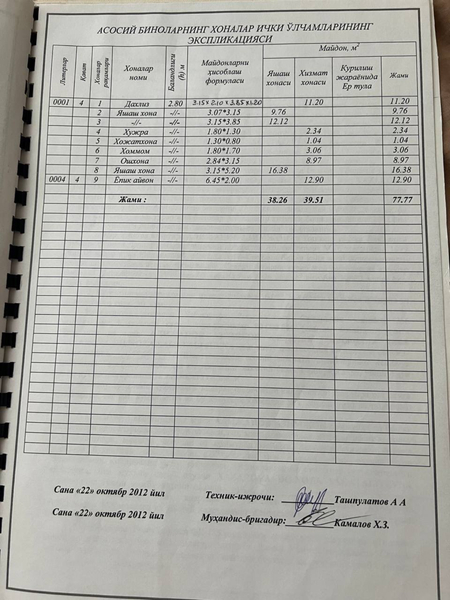 АСОСИЙ БИНОЛАРНИНГ ХОНАЛАР ИЧКИ ЎЛЧАМЛАРИНИНГ
ЭКСПЛИКАЦИЯСИ
Литерлар Қават Хоналар рақамлари Хоналар номи Баландлиги (h) м Майдонларни ҳисоблаш формуласи Майдон, м²
Яшаш хонаси Хизмат хонаси Қурилиш жараёнида Ер тула Жами
0001 4 1 Дахлиз 2.80 3.15×2.10×3.85×1.20 11.20 11.20
2 Яшаш хона -//- 3.07*3.15 9.76 9.76
3 -//- -//- 3.15*3.85 12.12 12.12
4 Хужра -//- 1.80*1.30 2.34 2.34
5 Хожатхона -//- 1.30*0.80 1.04 1.04
6 Хоммом -//- 1.80*1.70 3.06 3.06
7 Ошхона -//- 2.84*3.15 8.97 8.97
8 Яшаш хона -//- 3.15*5.20 16.38 16.38
0004 4 9 Епик айвон -//- 6.45*2.00 12.90 12.90
Жами : 38.26 39.51 77.77
Сана «22» октябр 2012 йил Техник-ижрочи: Ташпулатов А А
Сана «22» октябр 2012 йил Муҳандис-бригадир: Камалов Х.З.